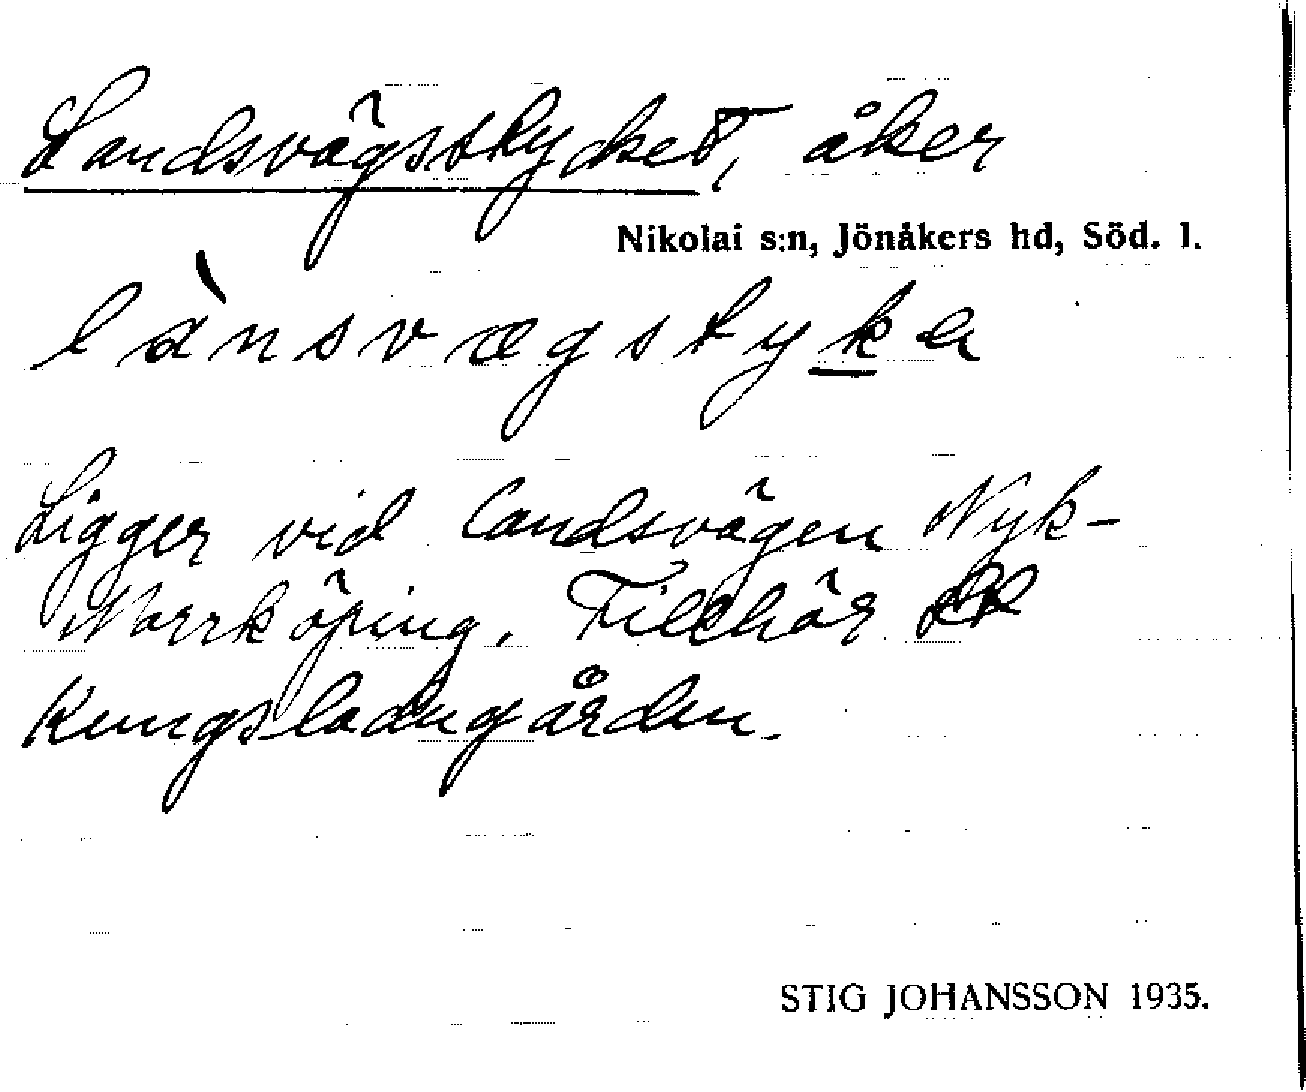 Landsvägstycket, åker
Nikolai s:n, Jönåkers hd, Söd. l.
lànsvægstyke
Ligger vid landsvägen Nyk-
Norrköping. Tillhör
Kungsladugården.
STIG JOHANSSON 1935.